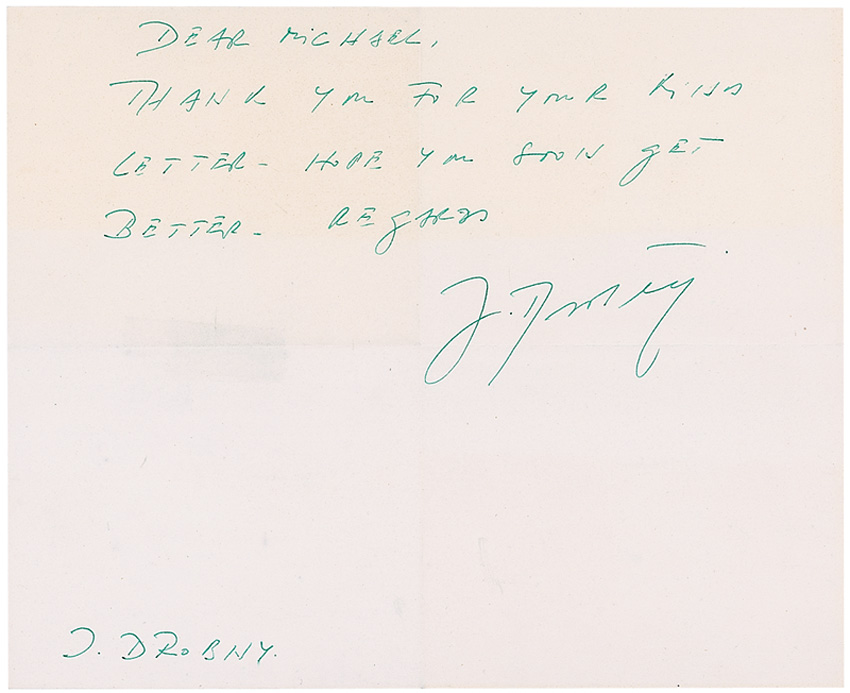 DEAR MICHAEL,
THANK YOU FOR YOUR KIND
LETTER - HOPE YOU SOON GET
BETTER - REGARDS
J. Drobny
J. DROBNY.